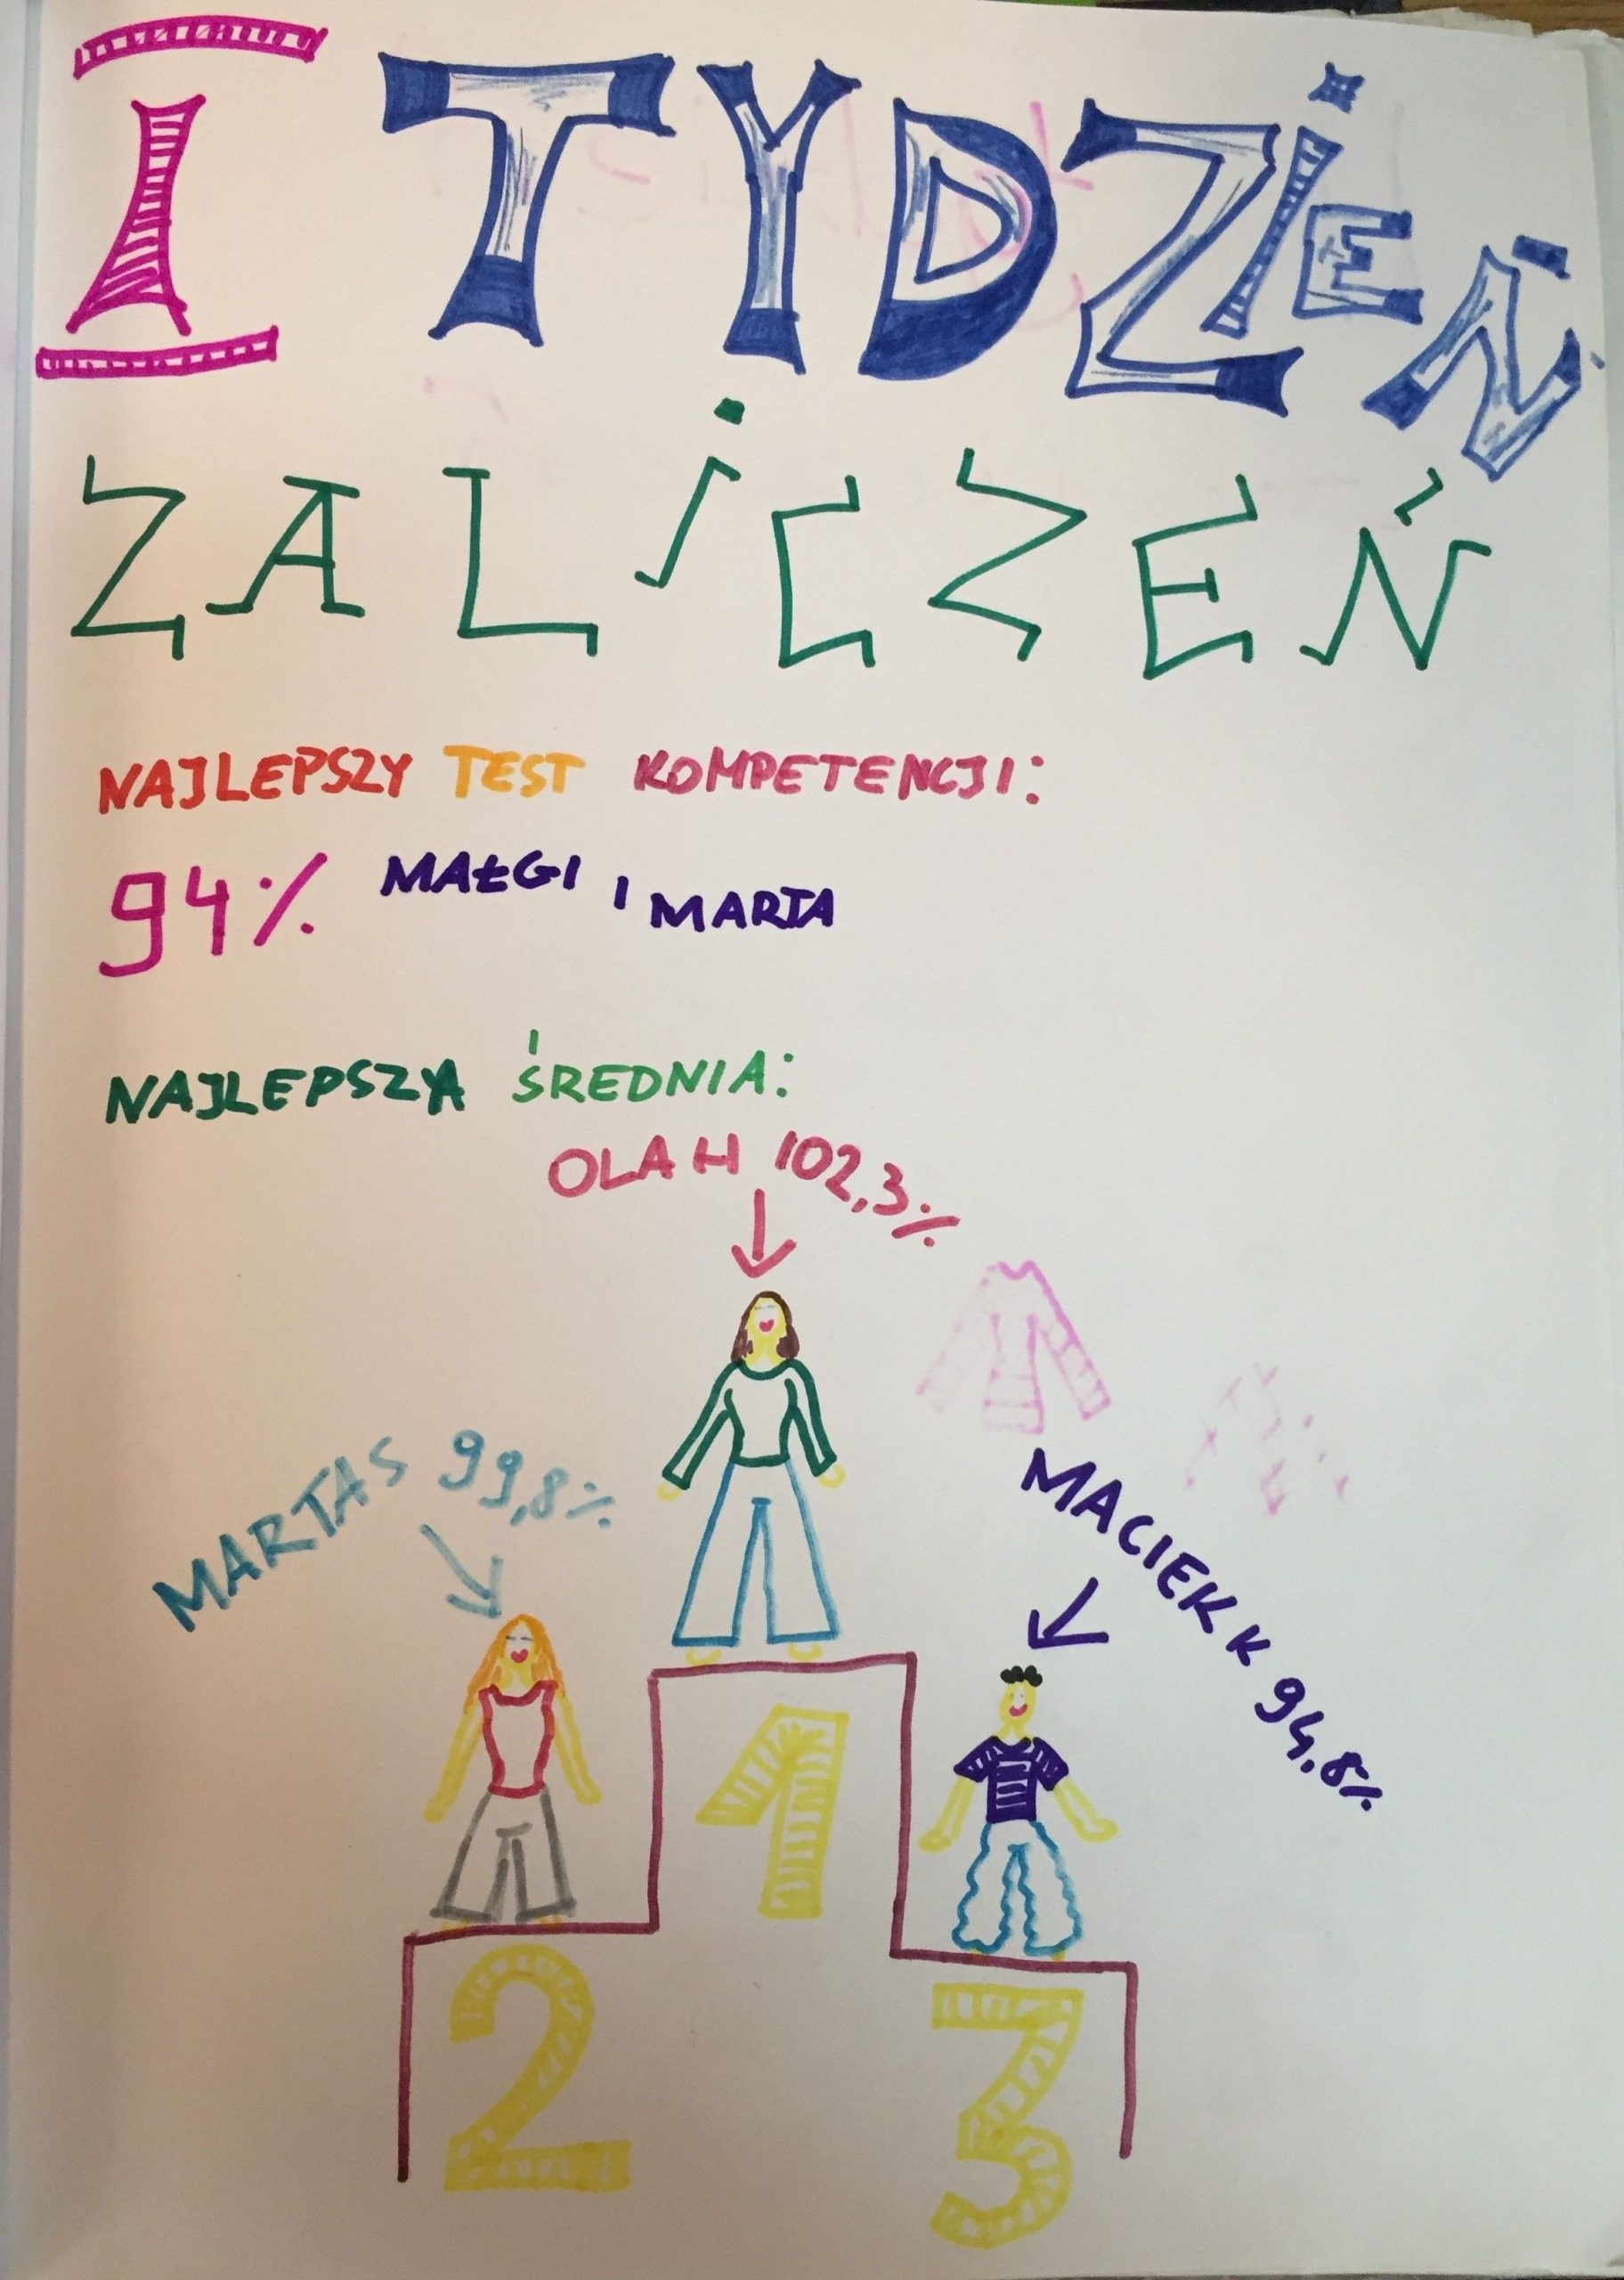 I TYDZIEŃ
ZALICZEŃ
NAJLEPSZY TEST KOMPETENCJI:
94% MAŁGI i MARTA
NAJLEPSZA ŚREDNIA:
OLA H 102,3%
MARTA S 99,8%
MACIEK K 94,8%
1
2
3